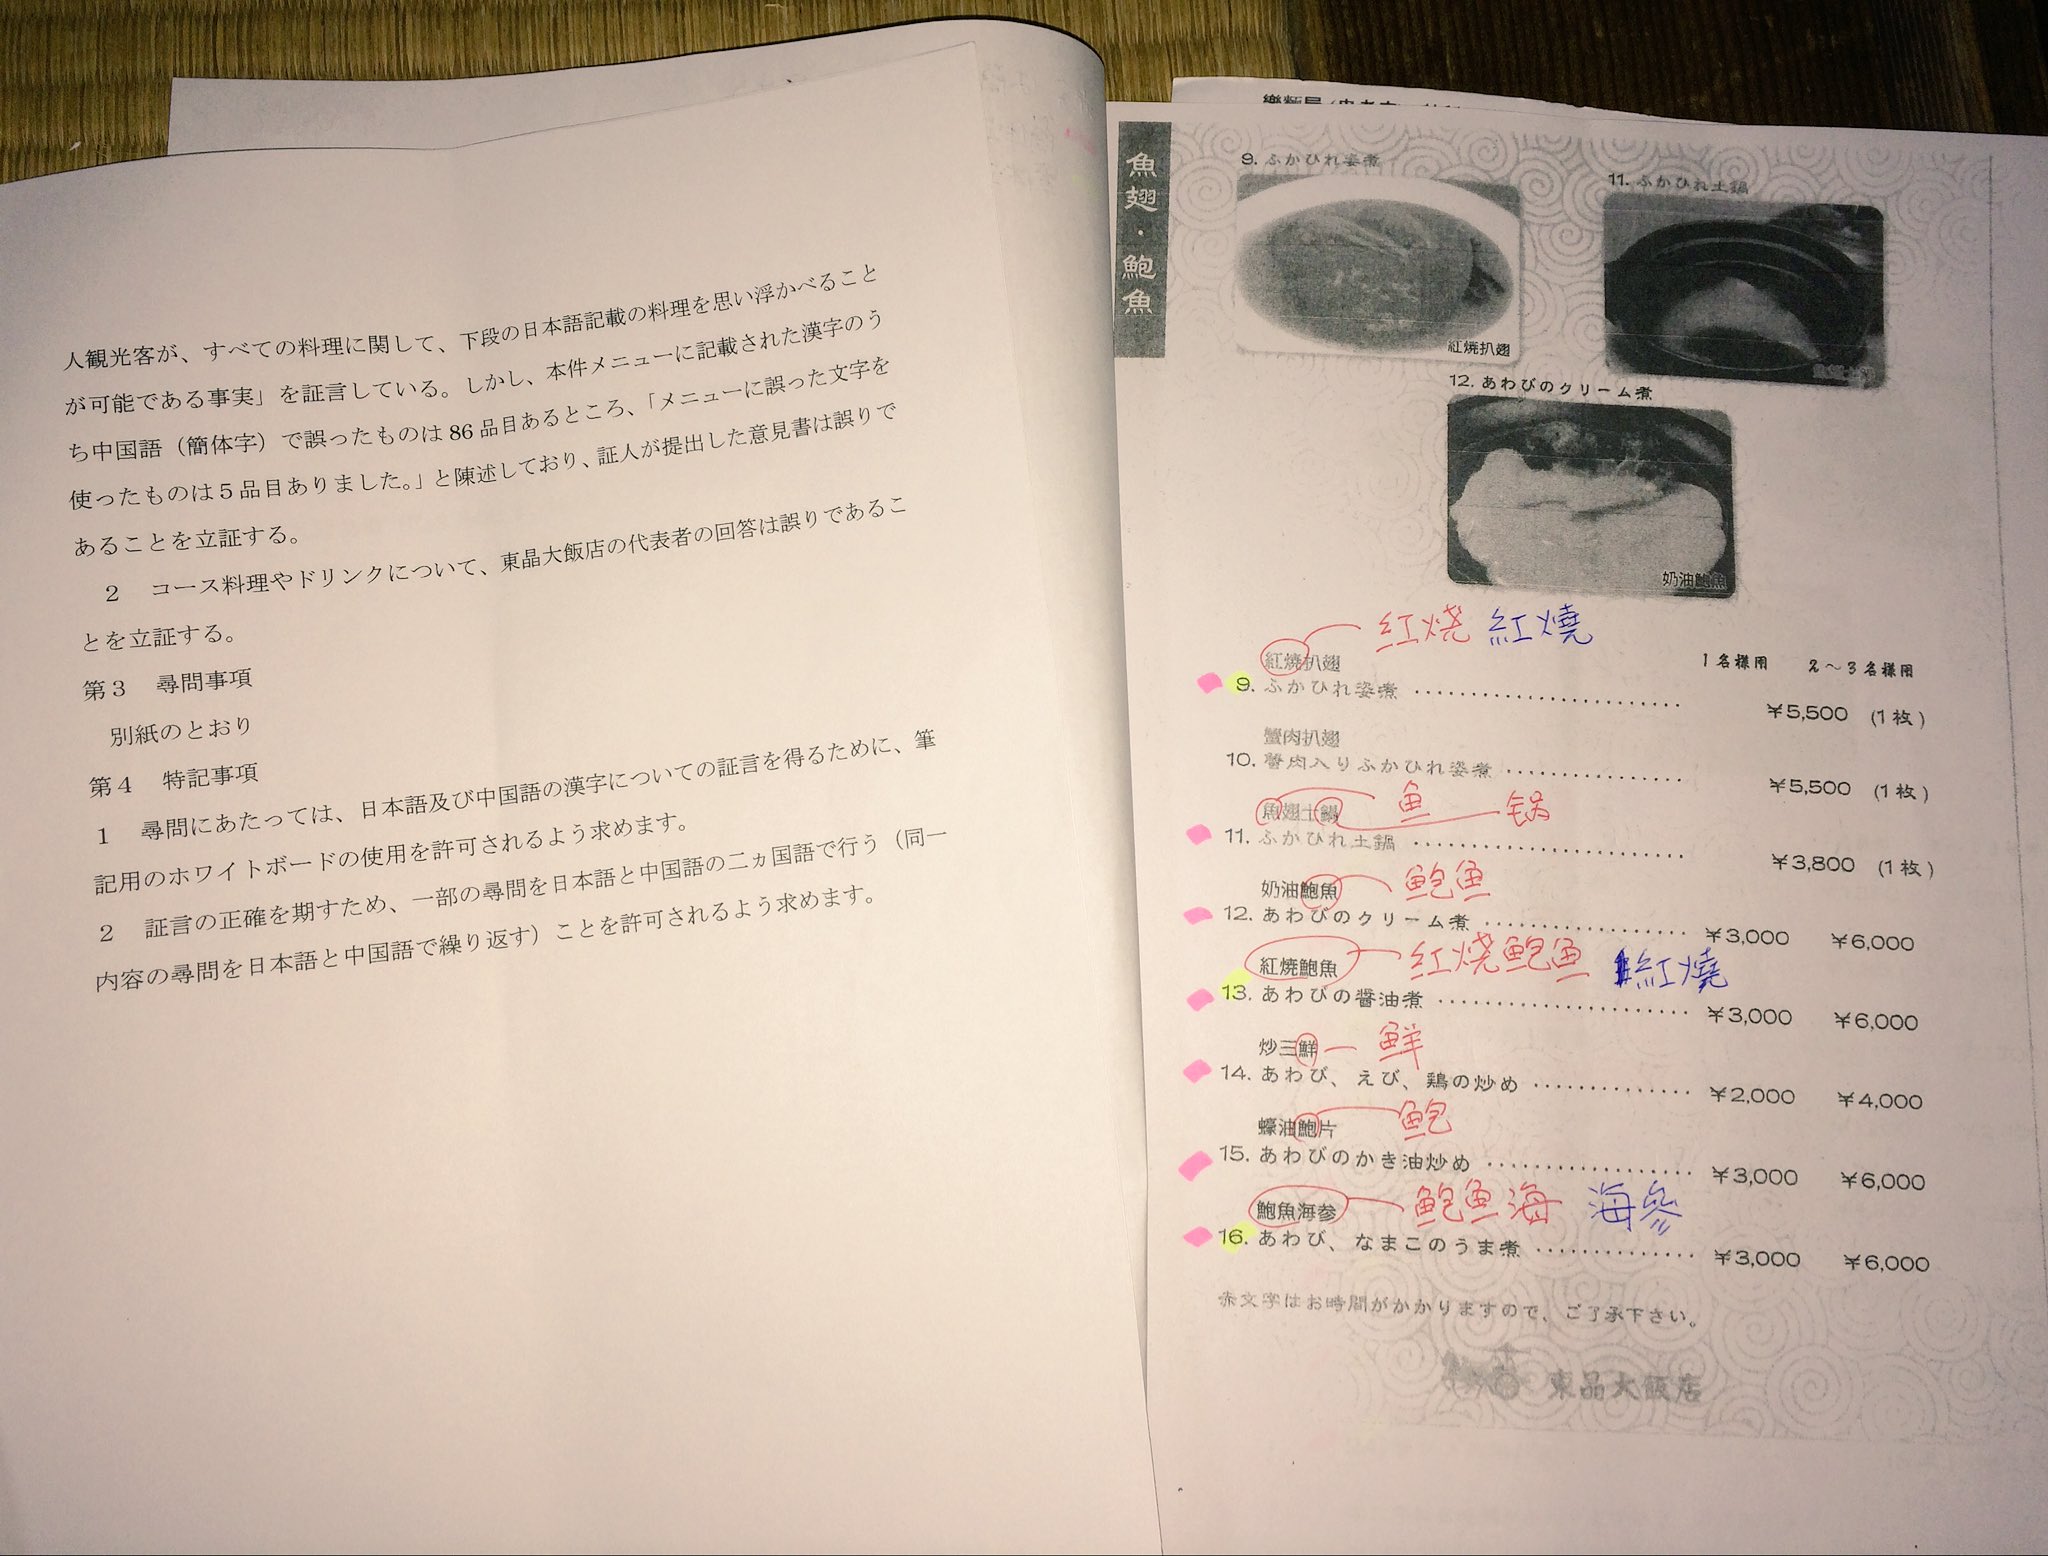 人観光客が、すべての料理に関して、下段の日本語記載の料理を思い浮かべること
が可能である事実」を証言している。しかし、本件メニューに記載された漢字のう
ち中国語（簡体字）で誤ったものは86品目あるところ、「メニューに誤った文字を
使ったものは５品目ありました。」と陳述しており、証人が提出した意見書は誤りで
あることを立証する。
２　コース料理やドリンクについて、東晶大飯店の代表者の回答は誤りであるこ
とを立証する。
第３　尋問事項
別紙のとおり
第４　特記事項
１　尋問にあたっては、日本語及び中国語の漢字についての証言を得るために、筆
記用のホワイトボードの使用を許可されるよう求めます。
２　証言の正確を期すため、一部の尋問を日本語と中国語の二ヵ国語で行う（同一
内容の尋問を日本語と中国語で繰り返す）ことを許可されるよう求めます。
魚翅・鮑魚
9. ふかひれ姿煮
11. ふかひれ土鍋
紅焼扒翅
12. あわびのクリーム煮
奶油鮑魚
红烧 紅燒
紅焼扒翅
1名様用 2～3名様用
9. ふかひれ姿煮 ¥5,500 (1枚)
蟹肉扒翅
10. 蟹肉入りふかひれ姿煮 ¥5,500 (1枚)
魚翅土鍋 鱼 锅
11. ふかひれ土鍋 ¥3,800 (1枚)
奶油鮑魚 鲍鱼
12. あわびのクリーム煮 ¥3,000 ¥6,000
紅焼鮑魚 红烧鲍鱼 紅燒
13. あわびの醤油煮 ¥3,000 ¥6,000
炒三鮮 鲜
14. あわび、えび、鶏の炒め ¥2,000 ¥4,000
蠔油鮑片 鲍
15. あわびのかき油炒め ¥3,000 ¥6,000
鮑魚海参 鲍鱼海 海參
16. あわび、なまこのうま煮 ¥3,000 ¥6,000
赤文字はお時間がかかりますので、ご了承下さい。
東晶大飯店